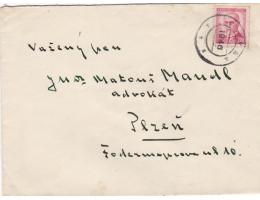 Vašený pan
JUDr Matouš Mandl
advokát
Plzeň
Fodermayrova ul 10.